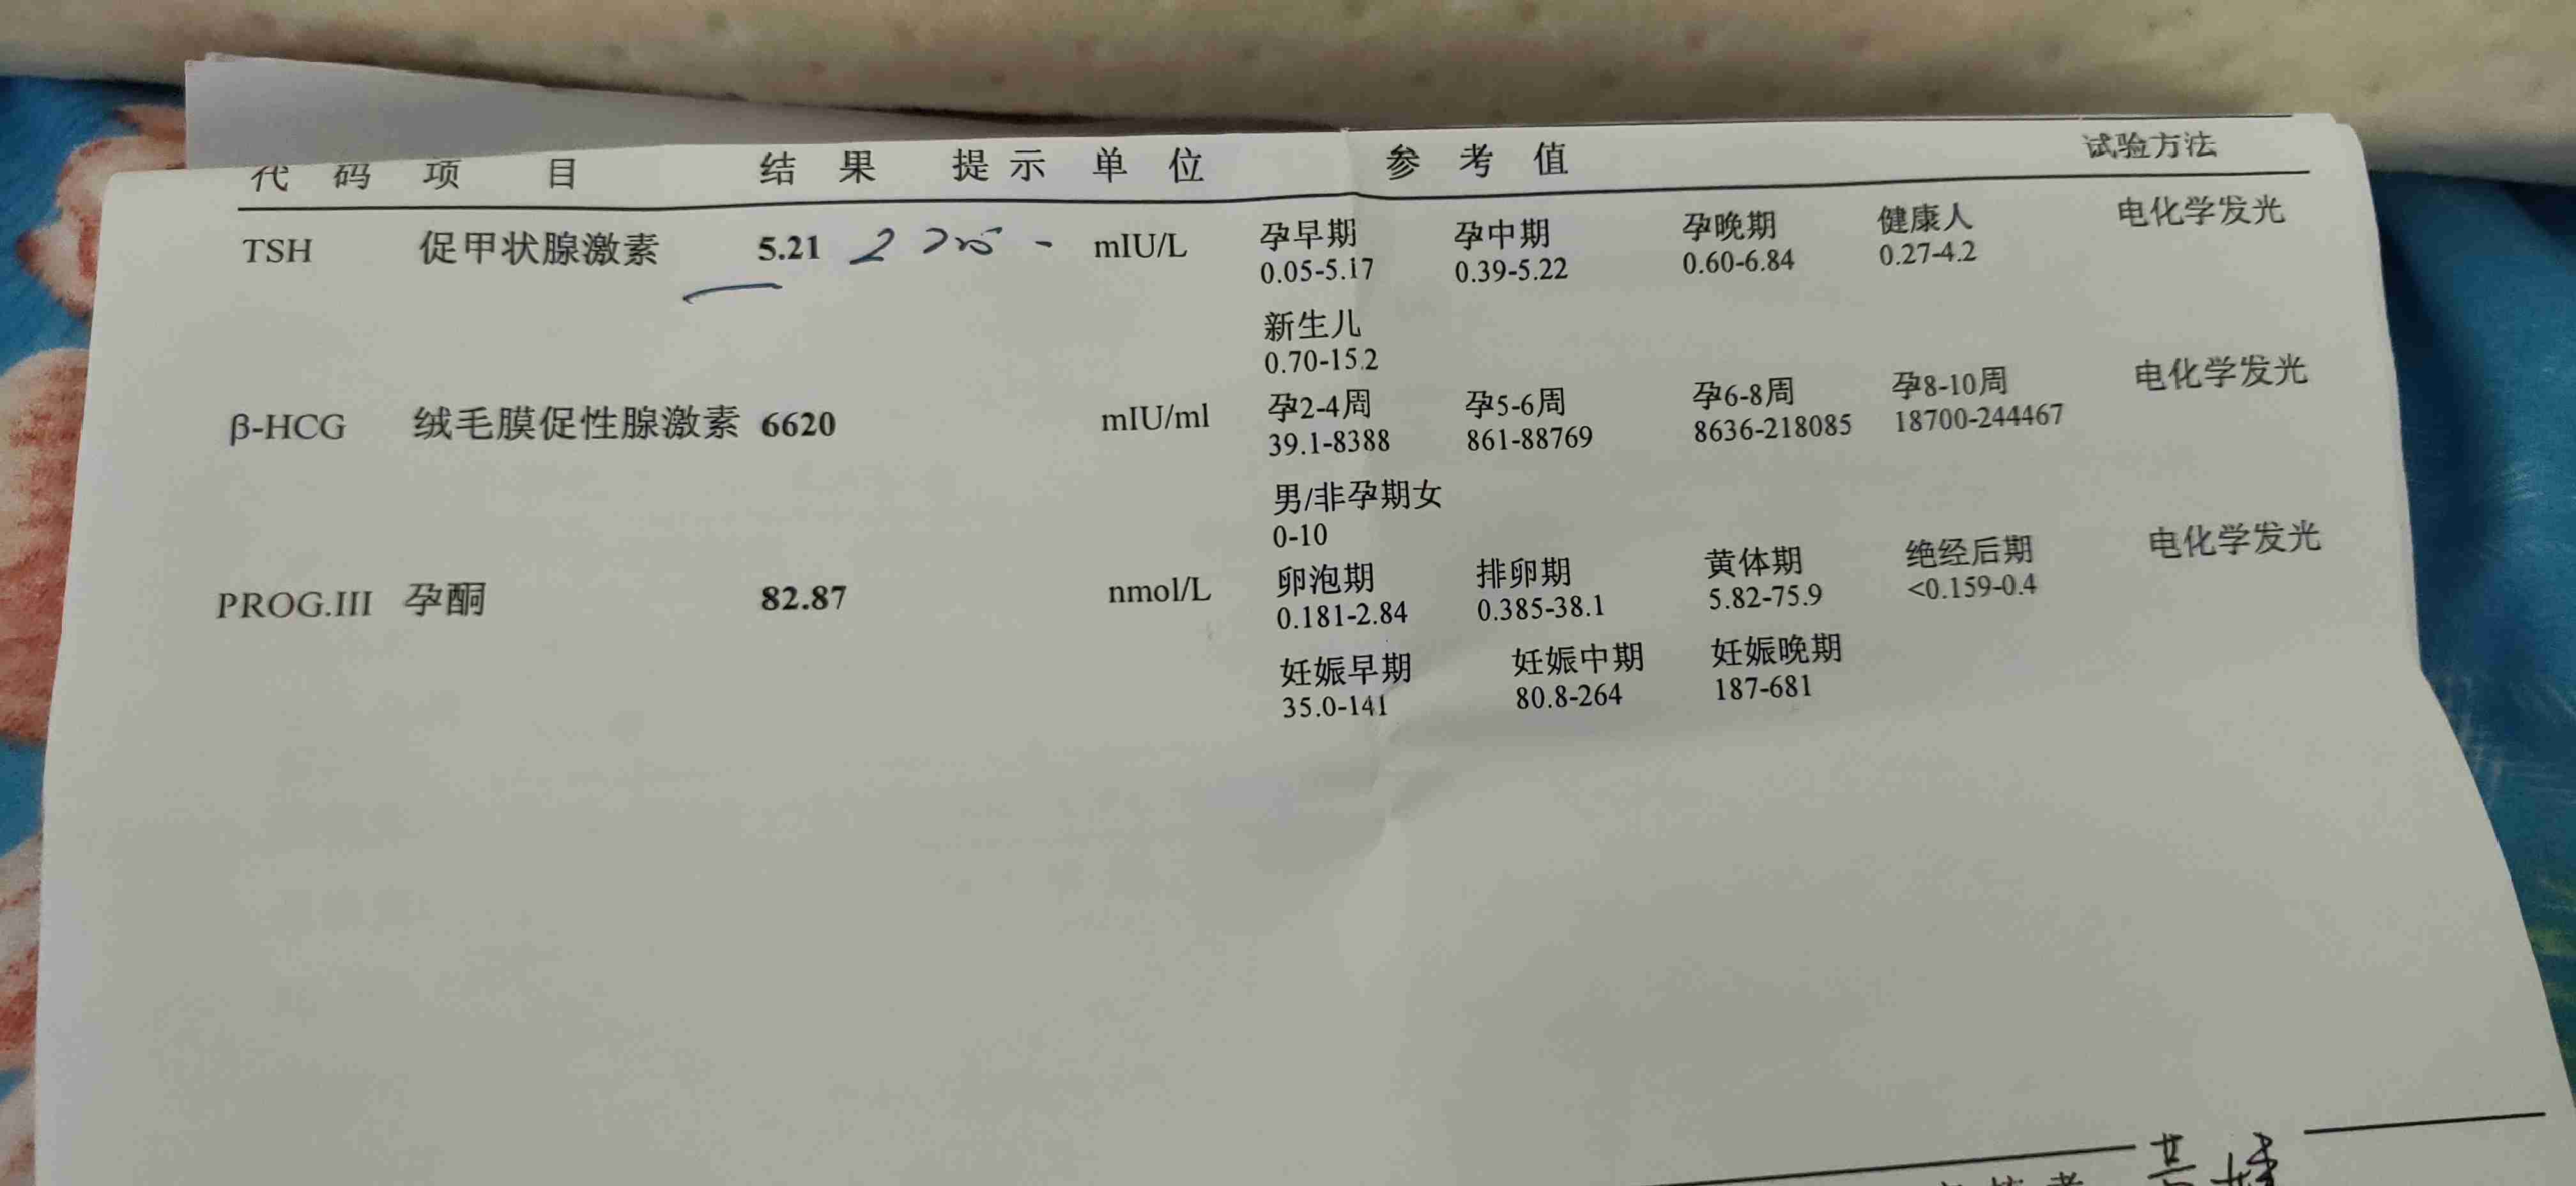 代 码 项 目 结 果 提 示 单 位 参 考 值 试验方法
TSH 促甲状腺激素 5.21 mIU/L 孕早期 孕中期 孕晚期 健康人 电化学发光
0.05-5.17 0.39-5.22 0.60-6.84 0.27-4.2
新生儿
0.70-15.2
β-HCG 绒毛膜促性腺激素 6620 mIU/ml 孕2-4周 孕5-6周 孕6-8周 孕8-10周 电化学发光
39.1-8388 861-88769 8636-218085 18700-244467
男/非孕期女
0-10
PROG.III 孕酮 82.87 nmol/L 卵泡期 排卵期 黄体期 绝经后期 电化学发光
0.181-2.84 0.385-38.1 5.82-75.9 <0.159-0.4
妊娠早期 妊娠中期 妊娠晚期
35.0-141 80.8-264 187-681